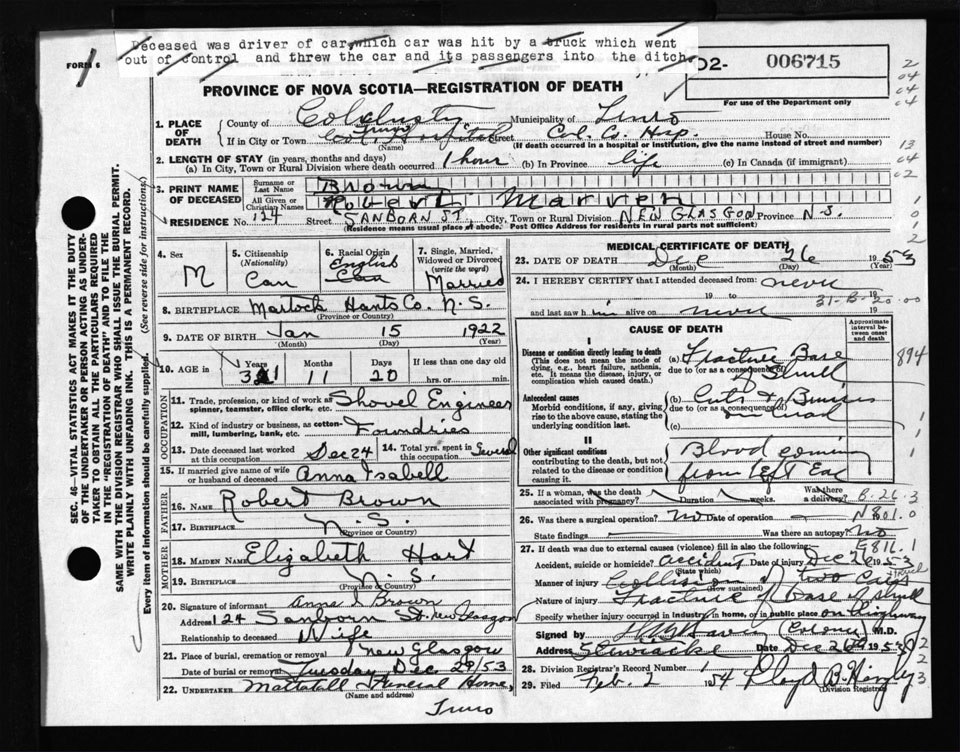 Deceased was driver of car, which car was hit by a truck which went
out of control and threw the car and its passengers into the ditch.
FORM 6
02- 006715
For use of the Department only
PROVINCE OF NOVA SCOTIA—REGISTRATION OF DEATH
1. PLACE OF DEATH
County of Colchester Municipality of Truro
If in City or Town Truro Street Col. Co. Hsp. House No.
(Name) (If death occurred in a hospital or institution, give the name instead of street and number)
2. LENGTH OF STAY (in years, months and days)
(a) In City, Town or Rural Division where death occurred 1 hour (b) In Province life (c) In Canada (if immigrant)
3. PRINT NAME OF DECEASED
Surname or Last Name Brown
All Given or Christian Names Robert Marven
RESIDENCE No. 124 Street SANBORN ST. City, Town or Rural Division NEW GLASGOW Province N.S.
(Residence means usual place of abode. Post Office Address for residents in rural parts not sufficient)
4. Sex M
5. Citizenship (Nationality) Can
6. Racial Origin English
7. Single, Married, Widowed or Divorced (write the word) Married
8. BIRTHPLACE Martock Hants Co. N.S.
(Province or Country)
9. DATE OF BIRTH Jan 15 1922
(Month) (Day) (Year)
10. AGE in Years 31 Months 11 Days 20 If less than one day old hrs. or min.
OCCUPATION
11. Trade, profession, or kind of work as spinner, teamster, office clerk, etc. Shovel Engineer
12. Kind of industry or business, as cotton-mill, lumbering, bank, etc. Foundries
13. Date deceased last worked at this occupation Dec 24
14. Total yrs. spent in this occupation Several
15. If married give name of wife or husband of deceased Anna Isabell
FATHER
16. Name Robert Brown
17. BIRTHPLACE N.S.
(Province or Country)
MOTHER
18. MAIDEN NAME Elizabeth Hart
19. BIRTHPLACE N.S.
(Province or Country)
20. Signature of informant Anna I Brown
Address 124 Sanborn St. New Glasgow
Relationship to deceased Wife
21. Place of burial, cremation or removal New Glasgow
Date of burial or removal Tuesday Dec. 29/53
22. UNDERTAKER Mattatall Funeral Home,
Truro
MEDICAL CERTIFICATE OF DEATH
23. DATE OF DEATH Dec 26 1953
(Month) (Day) (Year)
24. I HEREBY CERTIFY that I attended deceased from never
19 to 19
and last saw him alive on never 19
CAUSE OF DEATH
Approximate interval between onset and death
I
Disease or condition directly leading to death
(This does not mean the mode of dying, e.g., heart failure, asthenia, etc. It means the disease, injury, or complication which caused death.)
(a) Fracture Base of Skull
due to (or as a consequence of)
894
Antecedent causes
Morbid conditions, if any, giving rise to above cause, stating the underlying condition last.
(b) Cuts & Bruises
due to (or as a consequence of)
(c)
II
Other significant conditions
contributing to the death, but not related to the disease or condition causing it.
Blood coming from Left Ear
25. If a woman, was the death associated with pregnancy? Duration weeks. Was there a delivery?
26. Was there a surgical operation? No Date of operation
State findings Was there an autopsy? No
N801.0
E816.1
27. If death was due to external causes (violence) fill in also the following:
Accident, suicide or homicide? accident Date of injury Dec 26 1953
(State which)
Manner of injury Collision of two cars
(How sustained)
Nature of injury Fracture of base of skull
Specify whether injury occurred in industry, in home, or in public place on Highway
Signed by (Coroner) M.D.
Address Stewiacke Date Dec 1953
28. Division Registrar's Record Number 1
29. Filed Feb. 2 1954 Lloyd B.
(Division Registrar)
SEC. 46—VITAL STATISTICS ACT MAKES IT THE DUTY
OF THE UNDERTAKER OR PERSON ACTING AS UNDER-
TAKER TO OBTAIN ALL THE PARTICULARS REQUIRED
IN THE "REGISTRATION OF DEATH" AND TO FILE THE
SAME WITH THE DIVISION REGISTRAR WHO SHALL ISSUE THE BURIAL PERMIT.
WRITE PLAINLY WITH UNFADING INK. THIS IS A PERMANENT RECORD.
Every item of information should be carefully supplied. (See reverse side for instructions.)